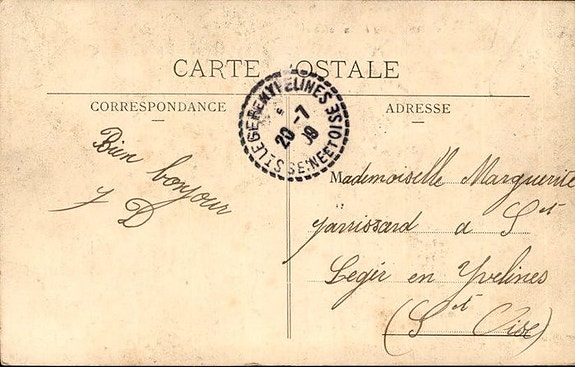 CARTE POSTALE
CORRESPONDANCE
ADRESSE
ST LEGER EN YVELINES SEINE ET OISE
20 - 7
09
Bien bonjour
D
Mademoiselle Marguerite
Jarrissard a St
Legir en Yvelines
(St Oise)